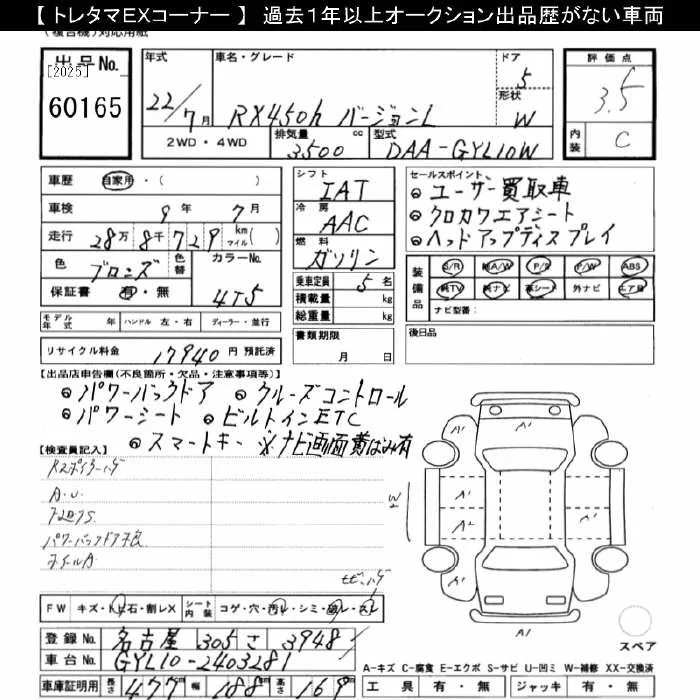 【 トレタマEXコーナー 】 過去1年以上オークション出品歴がない車両
(複合機)対応用紙
出品No.
[2025]
60165
年式
22/7月
車名・グレード
RX450h バージョンL
ドア
5
形状
W
評価点
3.5
内装
C
2WD・4WD
排気量
3500
cc
型式
DAA-GYL10W
車歴
自家用・( )
車検
9年 7月
走行
28万8千729
km
マイル( )
色
ブロンズ
色替
カラーNo.
4T5
保証書
有・無
シフト
IAT
冷房
AAC
燃料
ガソリン
乗車定員
5名
積載量
kg
総重量
kg
セールスポイント
ユーザー買取車
クロカワエアシート
ヘッドアップディスプレイ
装備品
S/R
純A/W
P/S
P/W
ABS
純TV
純ナビ
革シート
外ナビ
エアB
ナビ型番:
モデル年式
年
ハンドル
左・右
ディーラー・並行
書類期限
月 日
後日品
リサイクル料金
17940円 預託済
【出品店申告欄(不良箇所・欠品・注意事項等)】
パワーバックドア
クルーズコントロール
パワーシート
ビルトインETC
スマートキー
※ナビ画面
有
【検査員記入】
A.U.
パワーバックドア不良
ホイールA
A1
A1
A1
A2
A1
A1
A1
W2
FW
キズ・トビ石・割レX
シート内装
コゲ・穴・汚レ・シミ・破レ・スレ
登録No.
名古屋 305 さ 3948
車台No.
GYL10-2403281
車庫証明用
長さ
477
cm
幅
188
cm
高さ
169
cm
スペア
A-キズ C-腐食 E-エクボ S-サビ U-凹ミ W-補修 XX-交換済
工具
有・無
ジャッキ
有・無